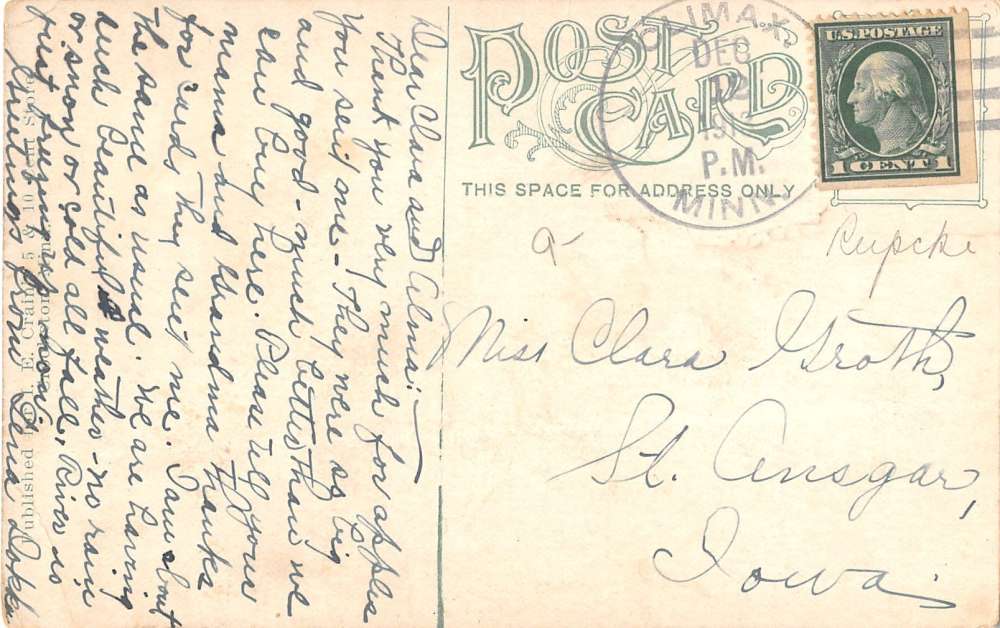 Dear Clara and Alma:—
Thank you very much for apples
you sent me - They were as big
and good - much better than we
can buy here. Please tell your
mama and Grandma thanks
for cards they sent me. I am about
the same as usual. We are having
such beautiful weather - no rain
or snow or cold all fall. River is
not frozen
Greetings from Dokk
Published E. Crain, 5 & 10 Cent Store
POST
CARD
THIS SPACE FOR ADDRESS ONLY
CLIMAX,
DEC
12
P.M.
MINN.
U.S. POSTAGE
1 CENT 1
Rupcke
Miss Clara Groth,
St. Ansgar,
Iowa.